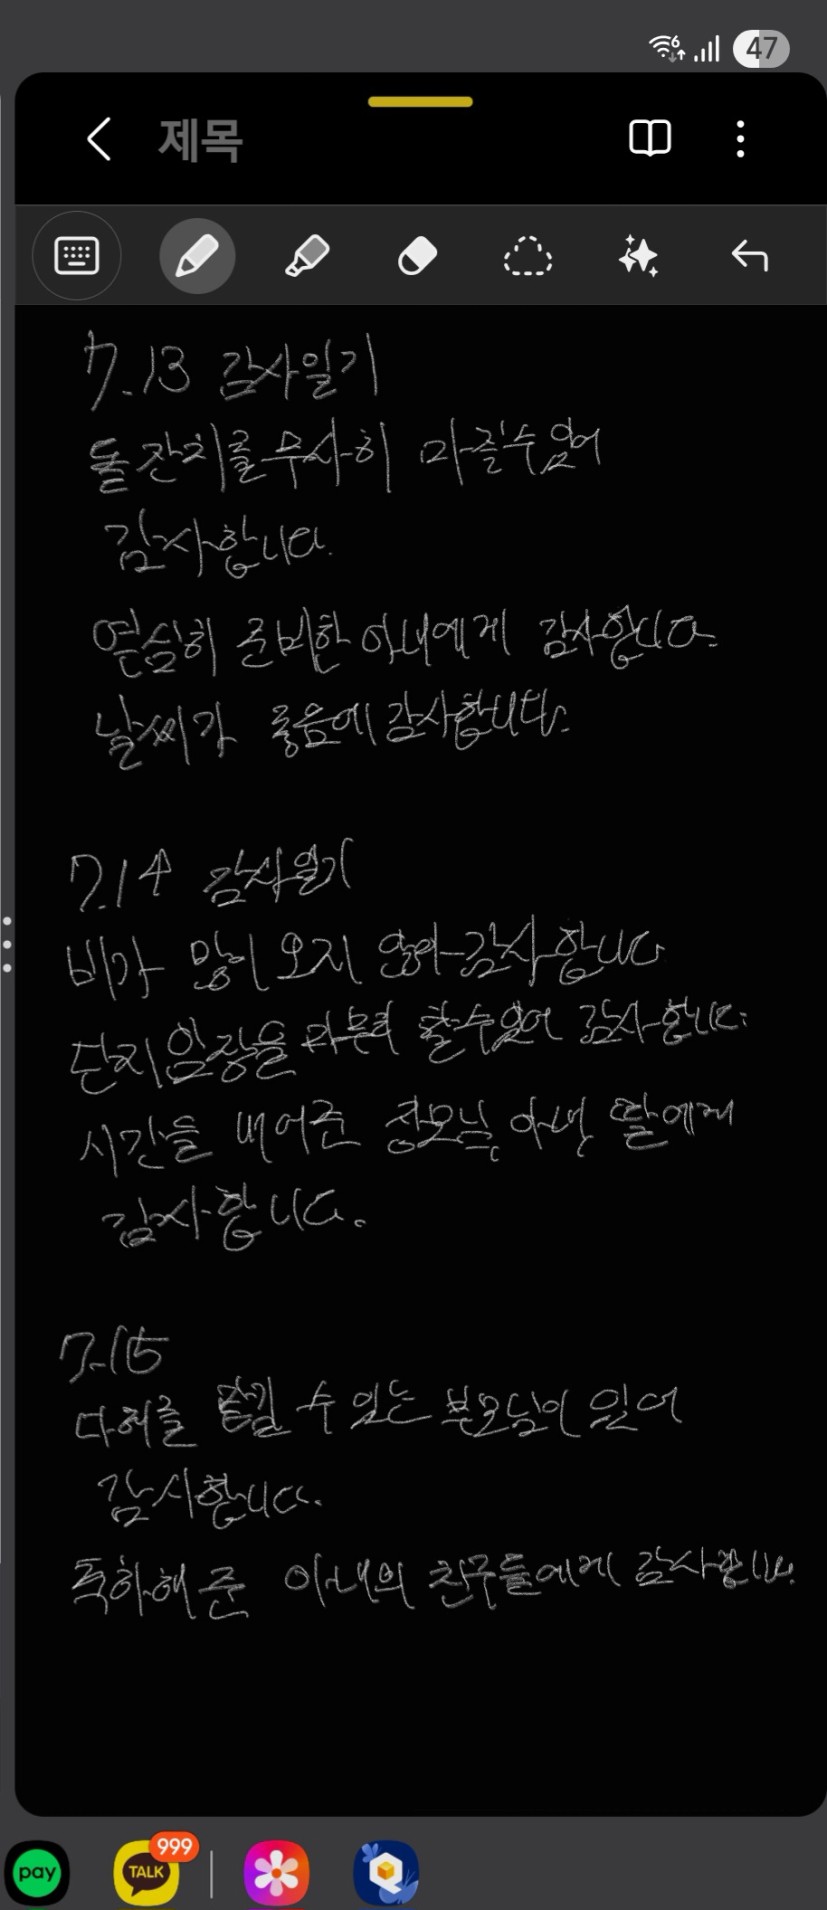 47
제목
7.13 감사일기
돌잔치를 무사히 마칠수있어
감사합니다.
열심히 준비한 아내에게 감사합니다.
날씨가 좋음에 감사합니다.
7.14 감사일기
비가 많이 오지 않아 감사합니다
단지임장을 마무리 할수있어 감사합니다.
시간을 내어준 장모님, 아내, 딸에게
감사합니다.
7.15
맡길 수 있는 부모님이 있어
감사합니다.
축하해 준 아내의 친구들에게 감사합니다.
pay
TALK
999